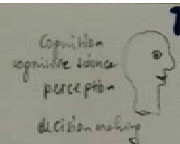 Cognition
cognitive science
perception
decision making